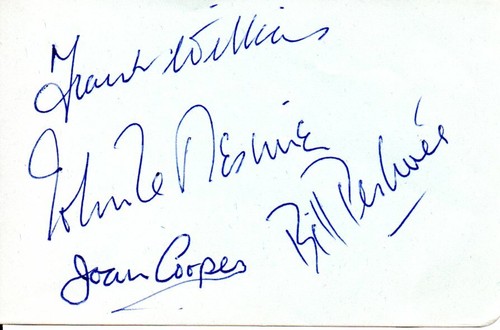 Frank Williams
John Le Mesurier
Joan Cooper
Bill Pertwee